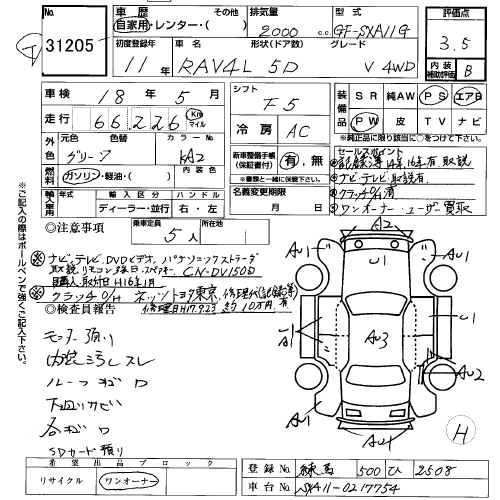 No. 31205
車歴 その他 排気量 型式 評価点
自家用・レンター・( ) 2000 GF-SXA11G 3.5
初度登録年 車名 形状(ドア数) グレード
11年 RAV4L 5D V 4WD 内装 補助評価 B
車検 18年 5月 シフト F5
装備品 SR 純AW PS エアB
PW 皮 TV ナビ
走行 66,226 Km マイル
*純正品に限り該当に○をつけて下さい。
外色 元色 色替 カラーNo. 冷房 AC
グリーン 6R2
セールスポイント
新車整備手帳(保証書付) 有・無
*車歴と一緒に保管して下さい。
ナビ・テレビ取説有.
クラッチO/H済
ワンオーナー・ユーザー買取
燃料 ガソリン・軽油・( ) 内装色
名義変更期限 月 日
輸入車用 年式 輸入区分 ハンドル
ディーラー・並行 右・左
○注意事項 乗車定員 5人 所在地
ナビ・テレビ、DVDビデオ、パナソニックストラーダ
CN-DV150D
購入、取付日H16年1月
クラッチO/H ネッツトヨタ東京
修理日H17.9.23 約10万円
○検査員報告
内装汚レスレ
ルーフキズ
下廻りサビ
各キズ
SDカード預り
A2
AU1 AU1
U1
A1 AU3 A1
AU2
A1 AU1 AU1
H
希望出品ブロック
リサイクル ワンオーナー
登録No. 練馬 500 ひ 2508
車台No. SXA11-0217754
※ご記入の際はボールペンで強くご記入下さい。